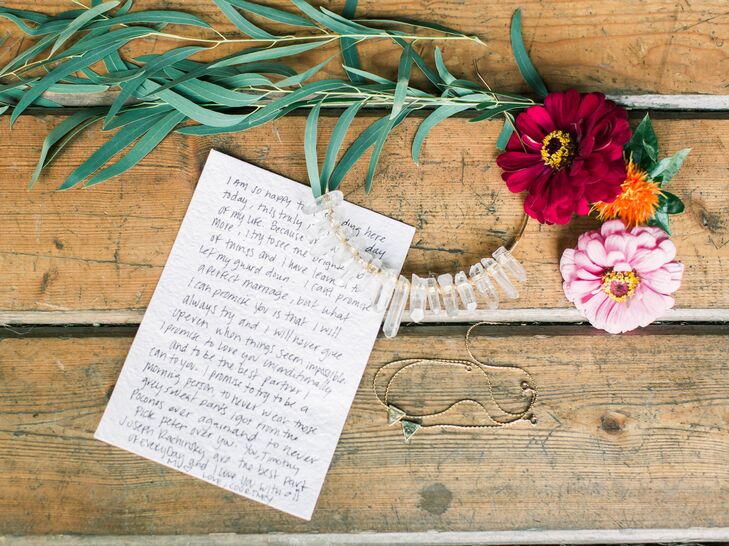 I AM so happy to be standing here
today, this truly is the best day
of my life. Because of you I love
more, I try to see the brighter side
of things and I have learned to
let my guard down. I can't promise
a perfect marriage, but what
I can promise you is that I will
always try and I will never give
up even when things seem impossible.
I promise to love you unconditionally
and to be the best partner I
can to you. I promise to try to be a
morning person, to never wear those
grey sweat pants I got from the
Poconos ever again and to never
pick peter over you. You, Timothy
Joseph are the best part
of everyday and I love you with all
Love, Courtney